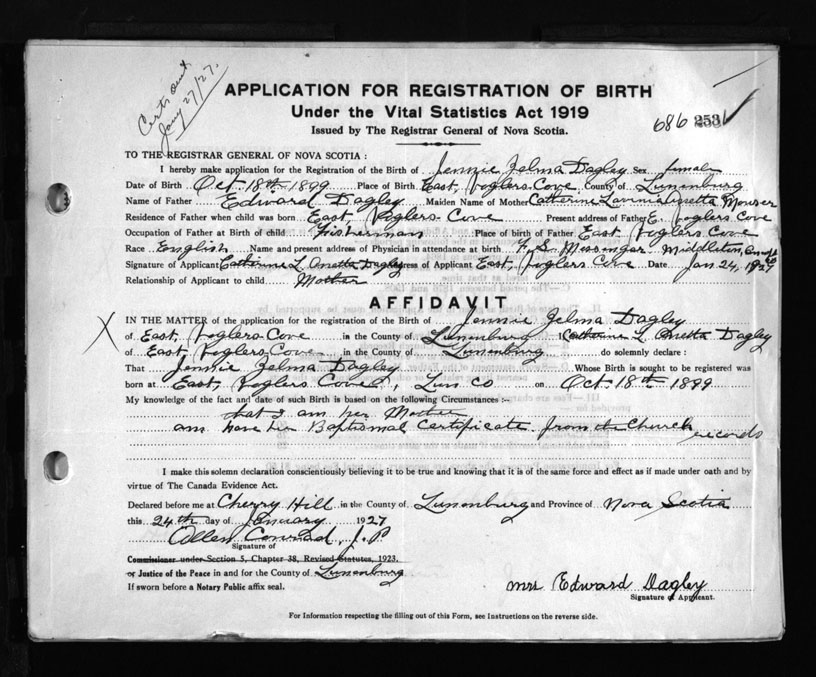 Certs Sent
Jany 27/27.
APPLICATION FOR REGISTRATION OF BIRTH
Under the Vital Statistics Act 1919
Issued by The Registrar General of Nova Scotia.
686 253
TO THE REGISTRAR GENERAL OF NOVA SCOTIA :
I hereby make application for the Registration of the Birth of Jennie Zelma Dagley Sex female
Date of Birth Oct. 18th 1899 Place of Birth East, Voglers Cove County of Lunenburg
Name of Father Edward Dagley Maiden Name of Mother Catherine Mouser
Residence of Father when child was born East, Voglers Cove Present address of Father E. Voglers Cove
Occupation of Father at Birth of child Fisherman Place of birth of Father East Voglers Cove
Race English Name and present address of Physician in attendance at birth F. S. Messinger Middleton,
Signature of Applicant Catherine L Onetta Dagley Address of Applicant East, Voglers Cove Date Jan 24, 1927
Relationship of Applicant to child Mother
AFFIDAVIT
X IN THE MATTER of the application for the registration of the Birth of Jennie Zelma Dagley
of East, Voglers Cove in the County of Lunenburg I Catherine L Onetta Dagley
of East, Voglers Cove in the County of Lunenburg do solemnly declare :
That Jennie Zelma Dagley Whose Birth is sought to be registered was
born at East, Voglers Cove, Lun Co on Oct 18th 1899
My knowledge of the fact and date of such Birth is based on the following Circumstances :-
that I am her Mother
am have her Baptismal Certificate from the Church records
I make this solemn declaration conscientiously believing it to be true and knowing that it is of the same force and effect as if made under oath and by
virtue of The Canada Evidence Act.
Declared before me at Cherry Hill in the County of Lunenburg and Province of Nova Scotia
this 24th day of January 1927
Allen Conrad, J.P
Signature of
Commissioner under Section 5, Chapter 38, Revised Statutes, 1923.
or Justice of the Peace in and for the County of Lunenburg
If sworn before a Notary Public affix seal.
Mrs Edward Dagley
Signature of Applicant.
For Information respecting the filling out of this Form, see Instructions on the reverse side.